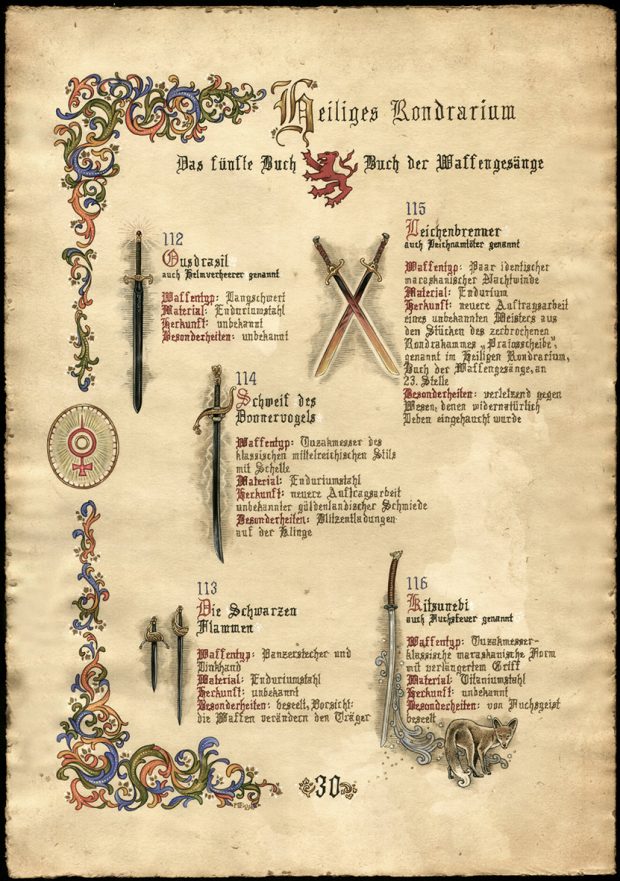 Heiliges Rondrarium
Das fünfte Buch
Buch der Waffengesänge
112
Ousdrasil
auch Helmverheerer genannt
Waffentyp: Langschwert
Material: Enduriumstahl
Herkunft: unbekannt
Besonderheiten: unbekannt
115
Leichenbrenner
auch Leichnamtöter genannt
Waffentyp: Paar identischer
maraskanischer Nachtwinde
Material: Endurium
Herkunft: neuere Auftragsarbeit
eines unbekannten Meisters aus
den Stücken des zerbrochenen
Rondrakammes „Praiosscheibe",
genannt im Heiligen Rondrarium,
Buch der Waffengesänge, an
23. Stelle
Besonderheiten: verletzend gegen
Wesen, denen widernatürlich
Leben eingehaucht wurde
114
Schweif des
Donnervogels
Waffentyp: Tuzakmesser des
klassischen mittelreichischen Stils
mit Schelle
Material: Enduriumstahl
Herkunft: neuere Auftragsarbeit
unbekannter güldenlandischer Schmiede
Besonderheiten: Blitzentladungen
auf der Klinge
113
Die Schwarzen
Flammen
Waffentyp: Panzerstecher und
Linkhand
Material: Enduriumstahl
Herkunft: unbekannt
Besonderheiten: beseelt, Vorsicht:
die Waffen verändern den Träger
116
Kitsunebi
auch Fuchsfeuer genannt
Waffentyp: Tuzakmesser-
klassische maraskanische Form
mit verlängertem Griff
Material: Titaniumstahl
Herkunft: unbekannt
Besonderheiten: von Fuchsgeist
beseelt
30